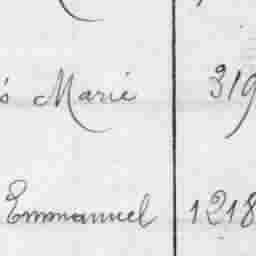 Marie 319
Emmanuel 1218